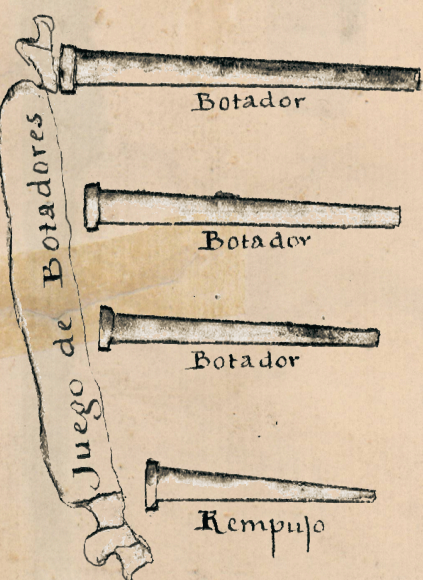 Juego de Botadores
Botador
Botador
Botador
Rempujo